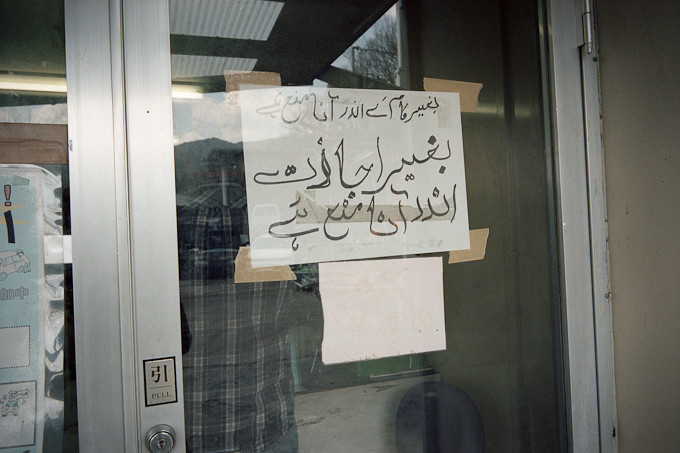 بغیر کام کے اندر آنا منع ہے
بغیر اجازت
اندر آنا منع ہے
引
PULL
!